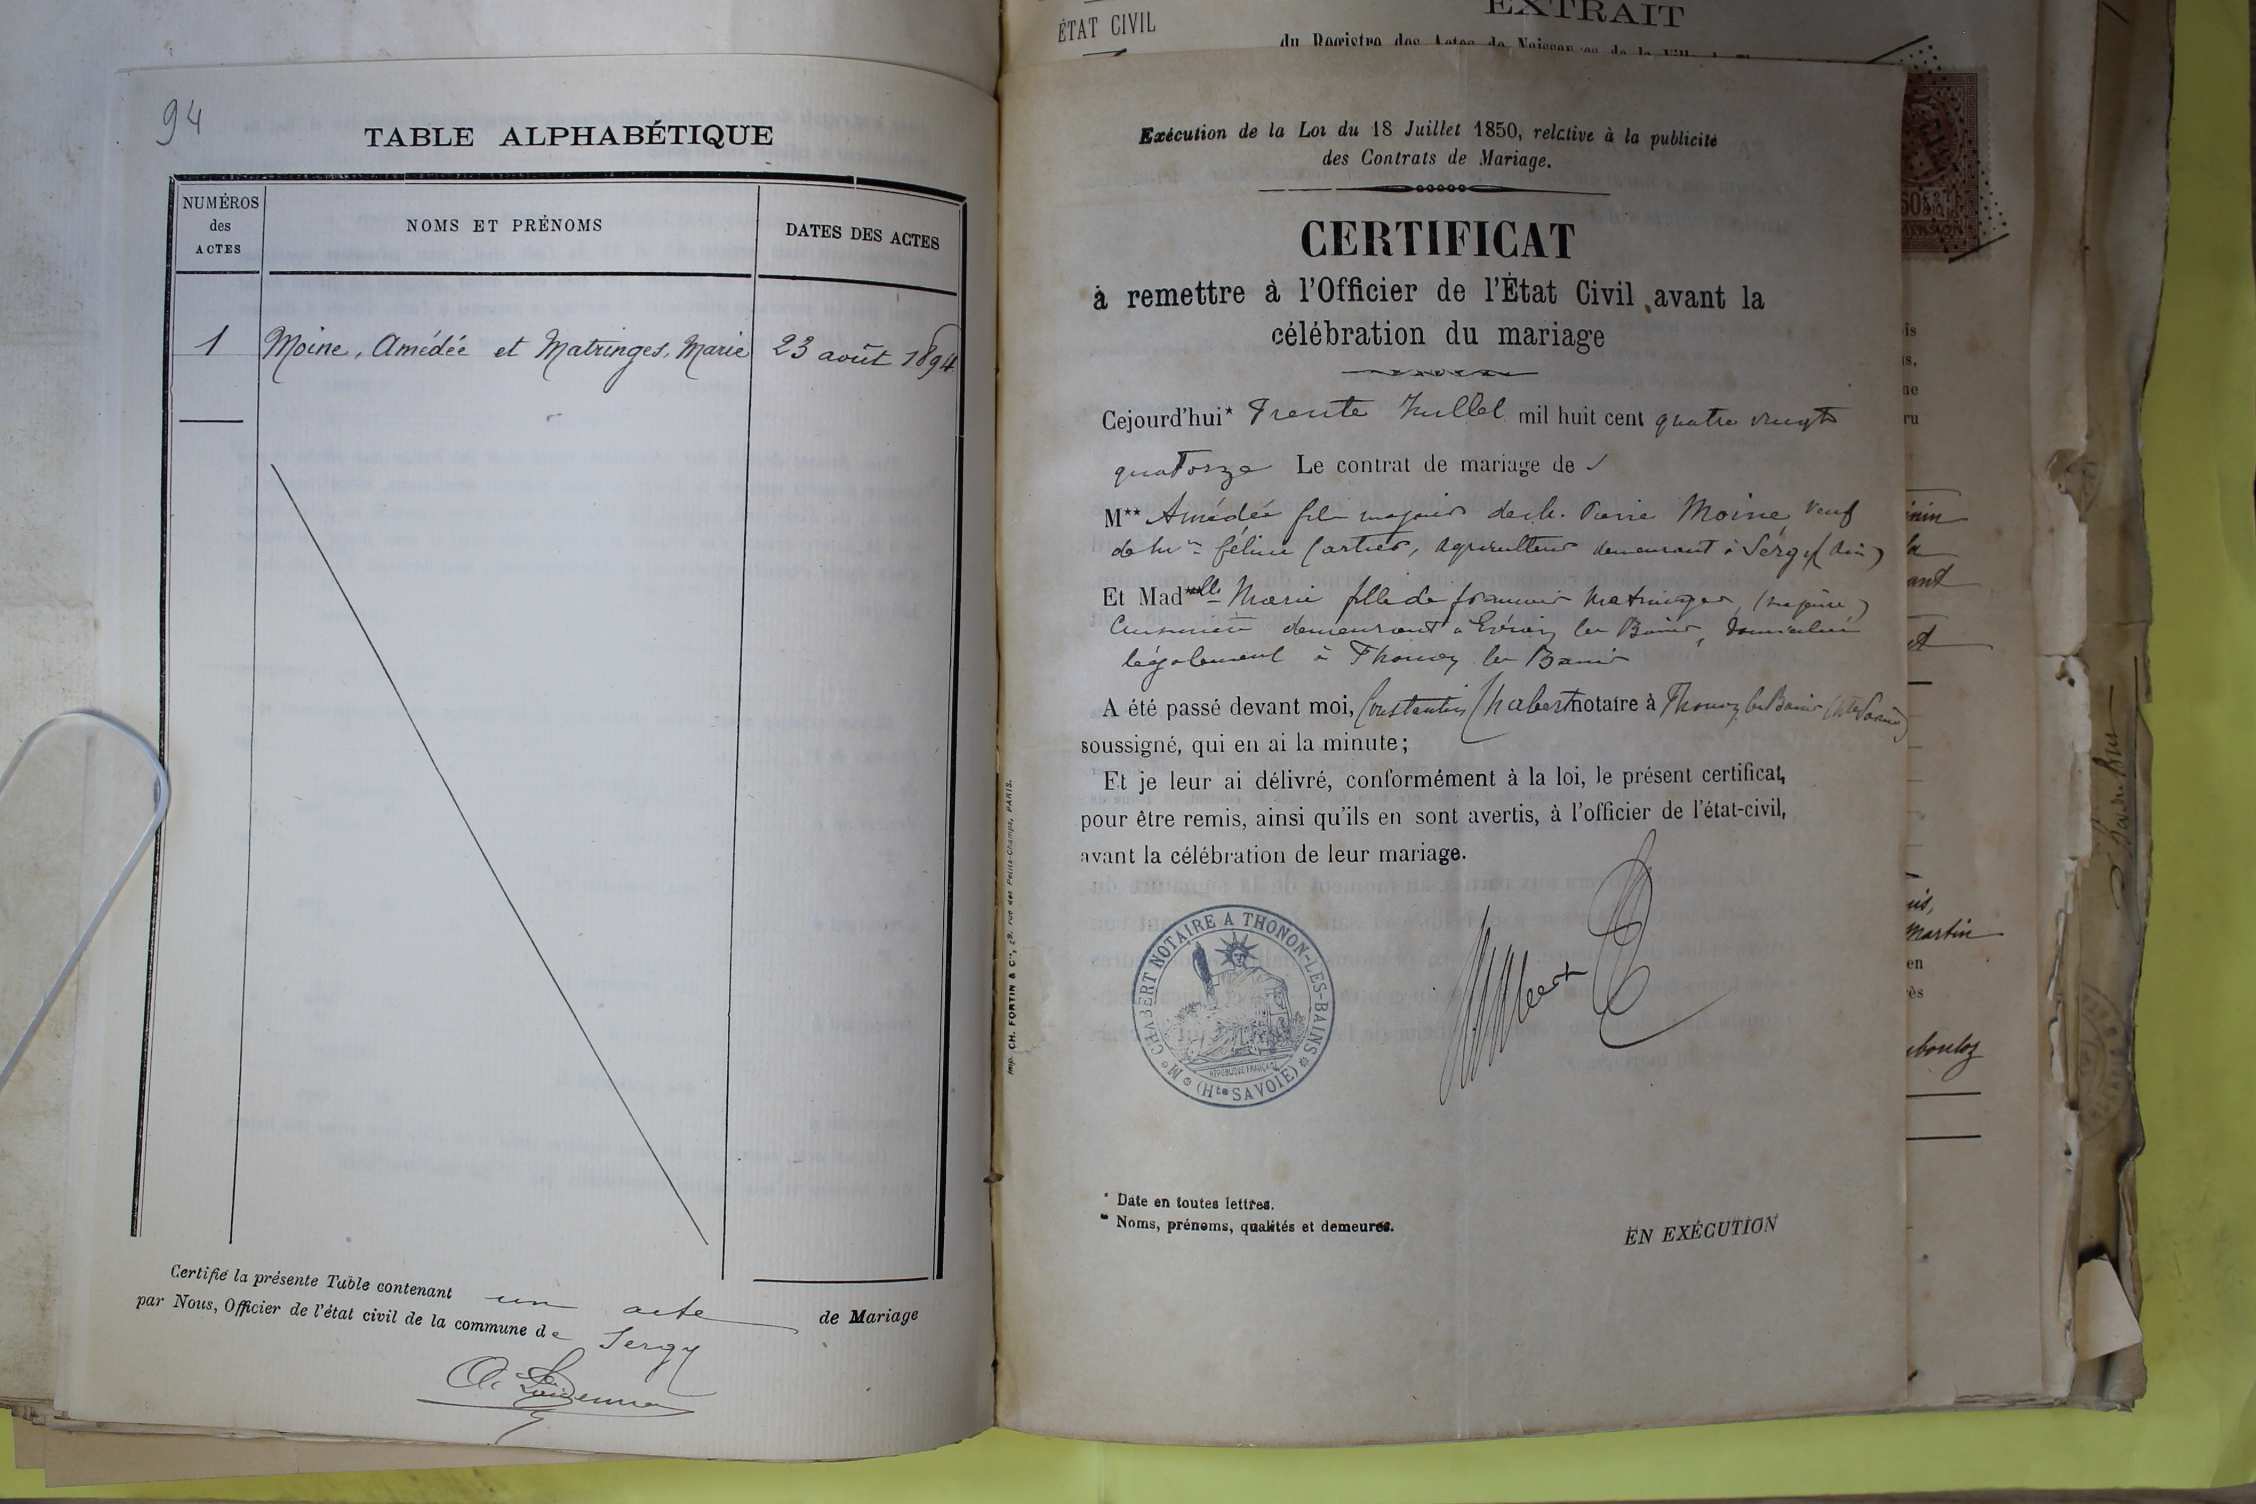 94
TABLE ALPHABÉTIQUE
NUMÉROS
des
ACTES
NOMS ET PRÉNOMS
DATES DES ACTES
1 Moine, Amédée et Matringes, Marie 23 août 1894
Certifié la présente Table contenant un acte de Mariage
par Nous, Officier de l'état civil de la commune de Sergy
ÉTAT CIVIL
EXTRAIT
du Registre des Actes de Naissances de la
Exécution de la Loi du 18 Juillet 1850, relative à la publicité
des Contrats de Mariage.
CERTIFICAT
à remettre à l'Officier de l'État Civil avant la
célébration du mariage
Cejourd'hui* Trente Juillet mil huit cent quatre vingt
quatorze Le contrat de mariage de
M** Amédée fils majeur de Pierre Moine, veuf
Féline Cartier, agriculteur demeurant à Sergy (Ain)
Et Mad**elle Marie fille de Matringes, (majeure)
demeurant à Evian les Bains, domiciliée
légalement à Thonon les Bains
A été passé devant moi, Constantin Chabert notaire à Thonon les Bains (Hte Savoie)
soussigné, qui en ai la minute;
Et je leur ai délivré, conformément à la loi, le présent certificat,
pour être remis, ainsi qu'ils en sont avertis, à l'officier de l'état-civil,
avant la célébration de leur mariage.
Me CHABERT NOTAIRE A THONON-LES-BAINS
(Hte SAVOIE)
RÉPUBLIQUE FRANÇAISE
Chabert
* Date en toutes lettres.
** Noms, prénoms, qualités et demeures.
EN EXÉCUTION
Imp. CH. FORTIN & Cie, rue des Petits-Champs, PARIS.
Martin
en